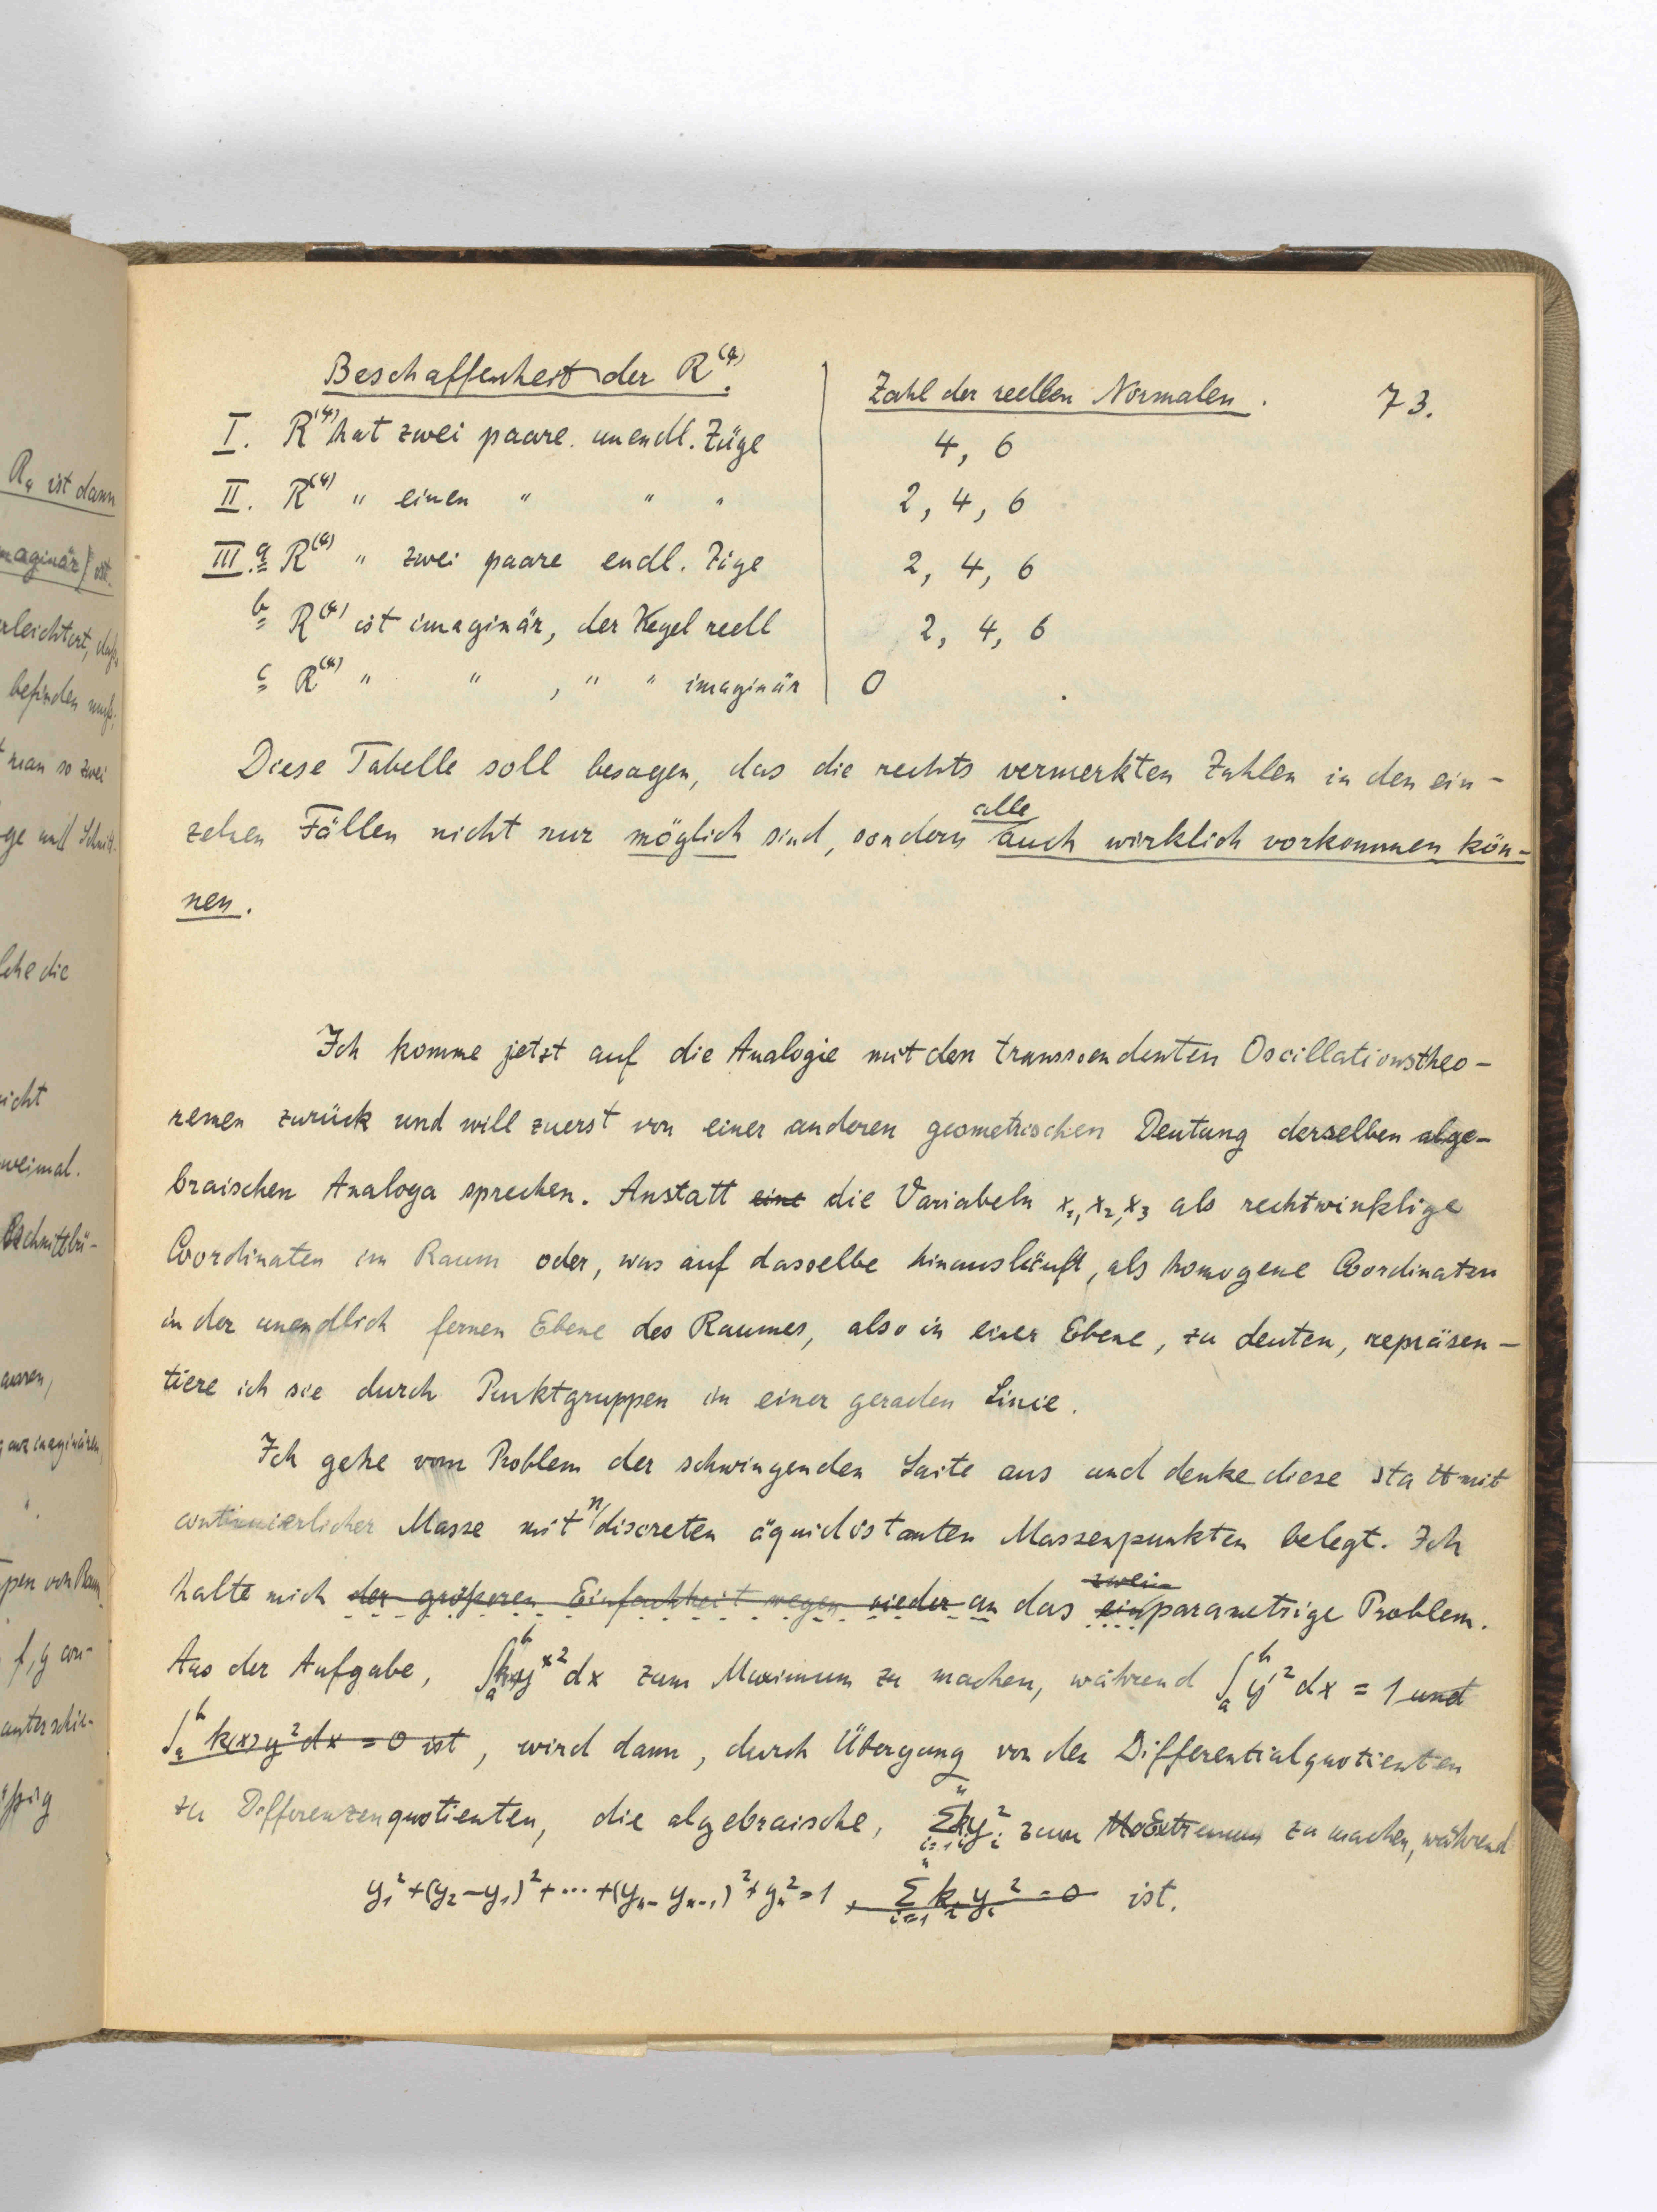 73.
Beschaffenheit der R⁽⁴⁾. Zahl der reellen Normalen.
I. R⁽⁴⁾ hat zwei paare unendl. Züge 4, 6
II. R⁽⁴⁾ " einen " " " 2, 4, 6
III. a R⁽⁴⁾ " zwei paare endl. Züge 2, 4, 6
b R⁽⁴⁾ ist imaginär, der Kegel reell 2, 4, 6
c R⁽⁴⁾ " " , " " imaginär 0
Diese Tabelle soll besagen, das die rechts vermerkten Zahlen in den ein-
zelnen Fällen nicht nur möglich sind, sondern alle auch wirklich vorkommen kön-
nen.
Ich komme jetzt auf die Analogie mit den transscendenten Oscillationstheo-
remen zurück und will zuerst von einer anderen geometrischen Deutung derselben alge-
braischen Analoga sprechen. Anstatt eine die Variabeln x₁, x₂, x₃ als rechtwinklige
Coordinaten im Raum oder, was auf dasselbe hinausläuft, als homogene Coordinaten
in der unendlich fernen Ebene des Raumes, also in einer Ebene, zu deuten, repräsen-
tiere ich sie durch Punktgruppen in einer geraden Linie.
Ich gehe vom Problem der schwingenden Saite aus und denke diese statt mit
continuierlicher Masse mit n discreten äquidistanten Massenpunkten belegt. Ich
halte mich der größeren Einfachheit wegen wieder an das zwei ein parametrige Problem.
Aus der Aufgabe, ∫ₐᵇ y² dx zum Maximum zu machen, während ∫ₐᵇ y'² dx = 1 und
∫ₐᵇ k(x) y² dx = 0 ist, wird dann, durch Übergang von den Differentialquotienten
zu Differenzenquotienten, die algebraische, Σ kᵢ yᵢ² zum Extremum zu machen, während
y₁² + (y₂ - y₁)² + ... + (yₙ - yₙ₋₁)² + yₙ² = 1, Σ kᵢ yᵢ² = 0 ist.
R₄ ist dann
rleichtert, daß
befinden muß,
man so zwei
ge und Schnitt-
che die
icht
weimal.
f, g